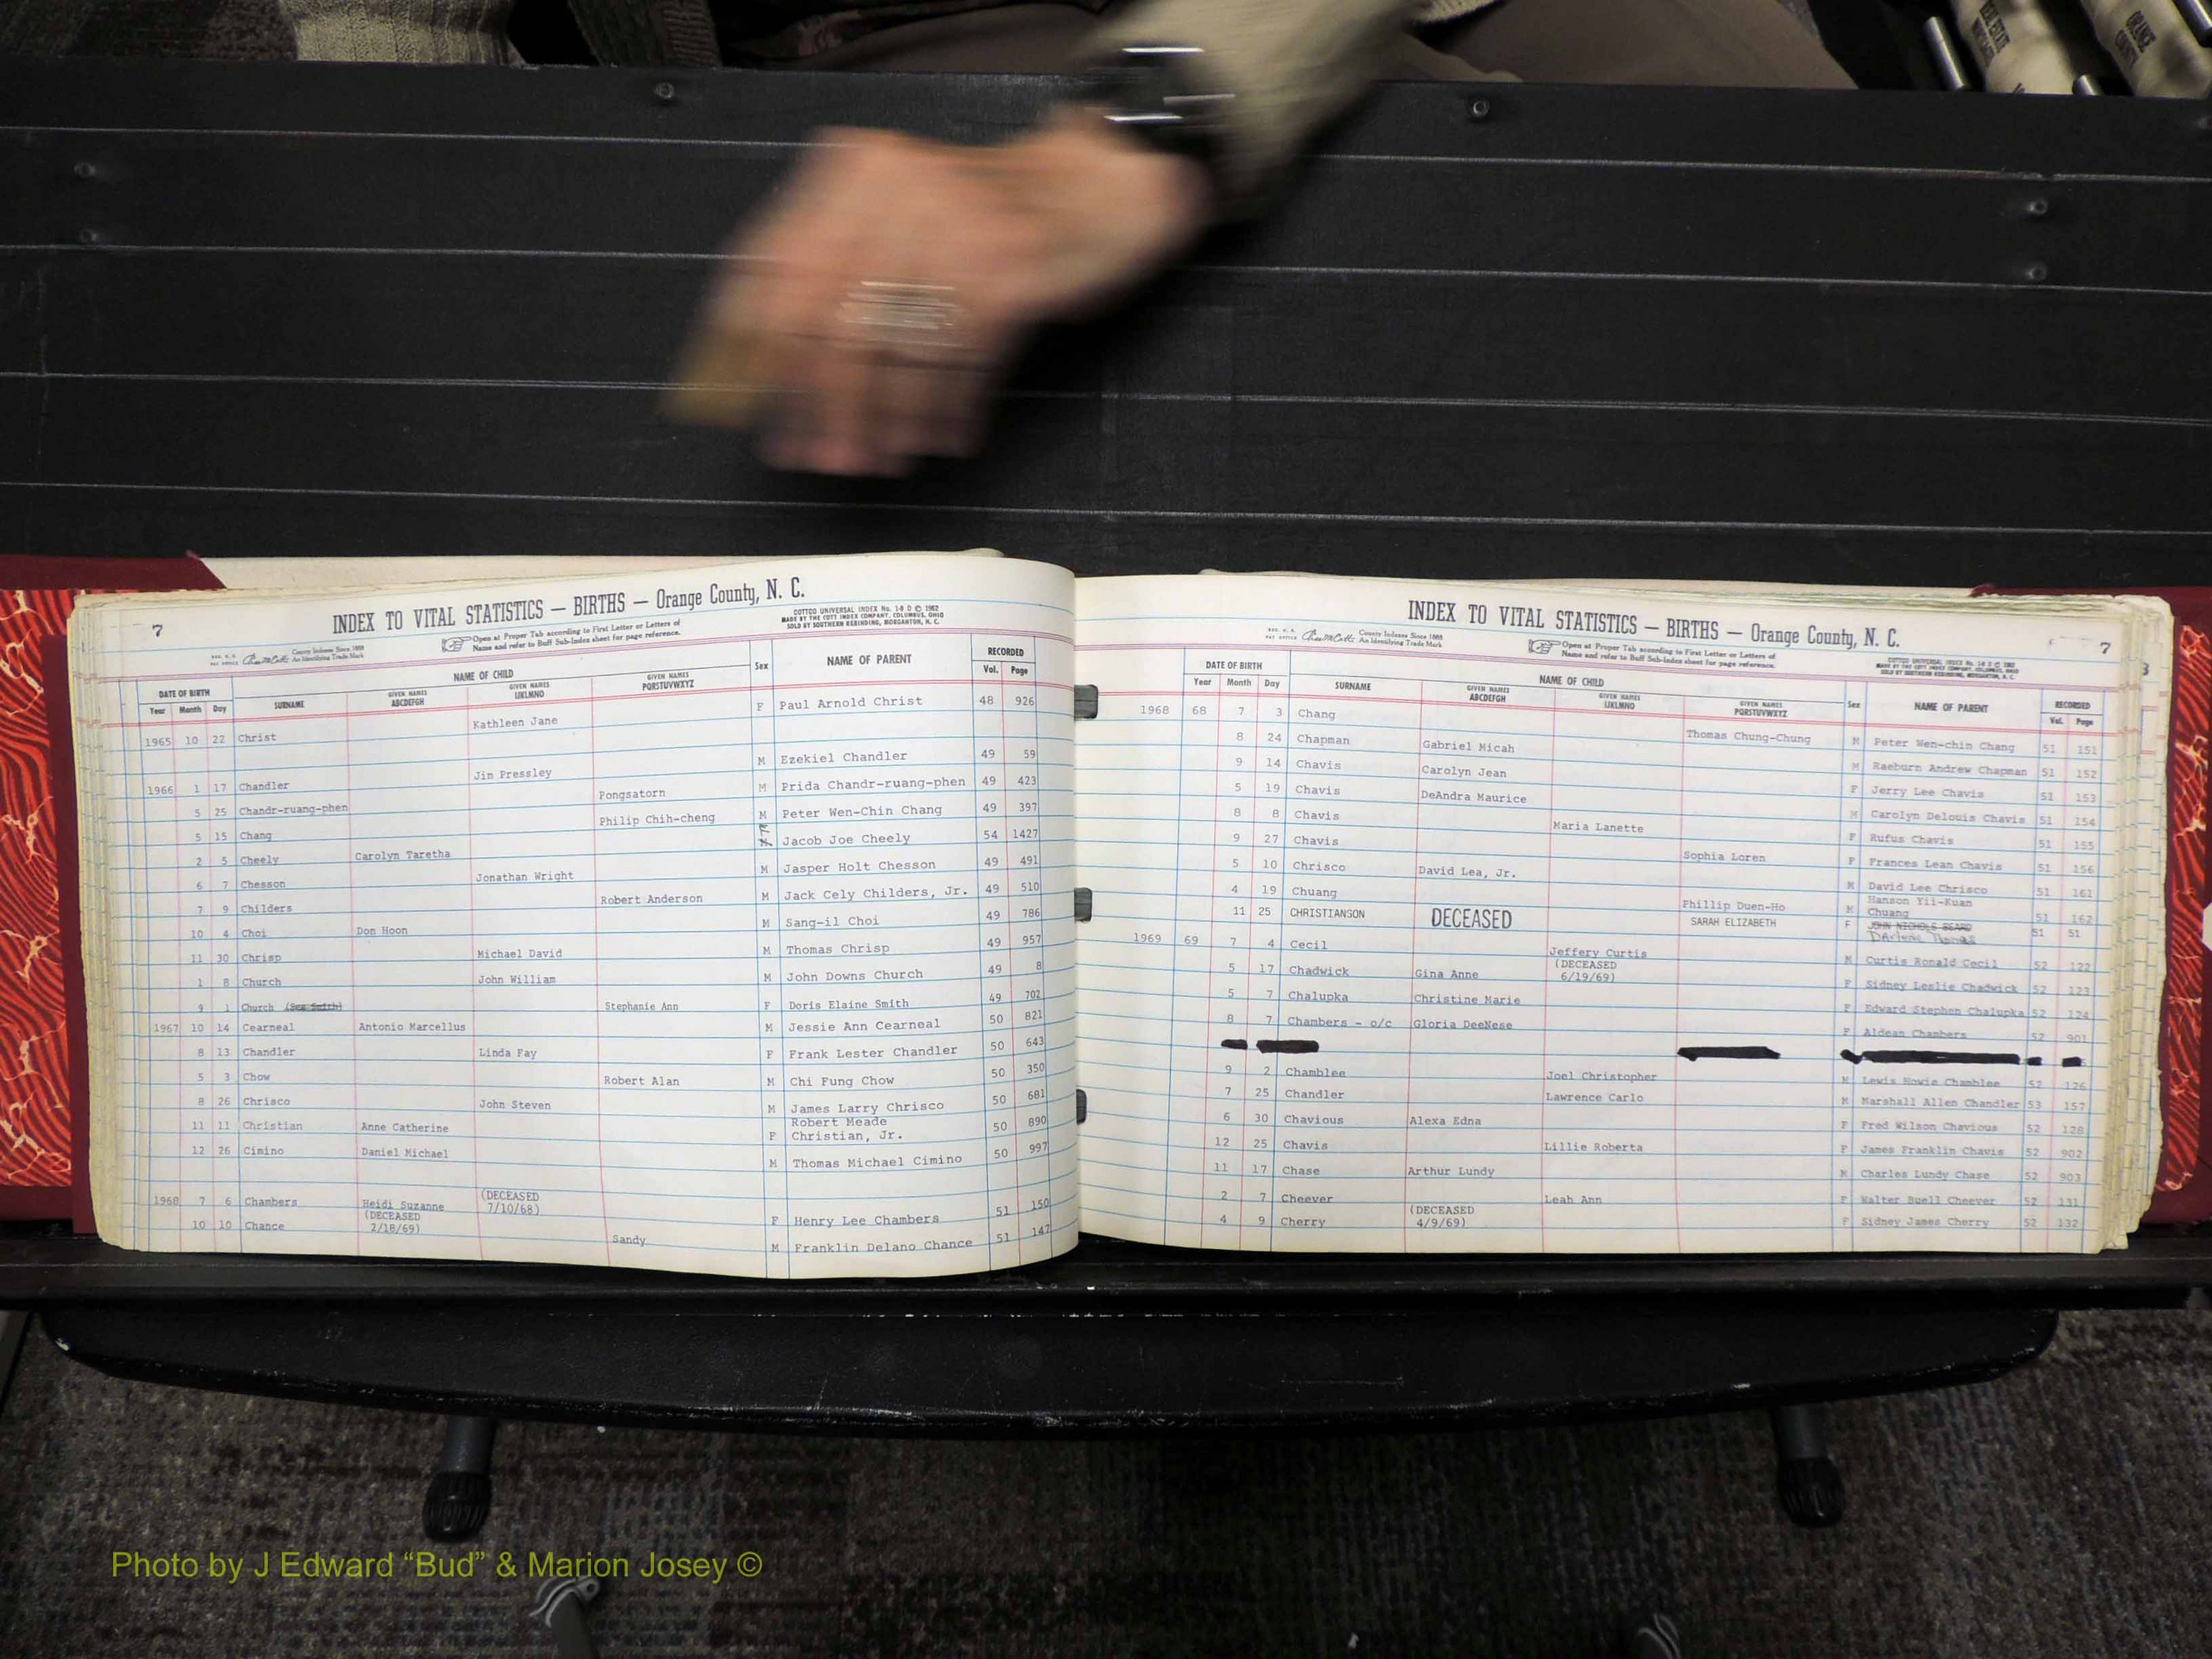 REAL ESTATE
ORANGE
7
INDEX TO VITAL STATISTICS — BIRTHS — Orange County, N. C.
County Indexes Since 1888
An Identifying Trade Mark
Open at Proper Tab according to First Letter or Letters of
Name and refer to Buff Sub-Index sheet for page reference.
COTTCO UNIVERSAL INDEX No. 1-9 D © 1962
MADE BY THE COTT INDEX COMPANY, COLUMBUS, OHIO
SOLD BY SOUTHERN REBINDING, MORGANTON, N. C.
DATE OF BIRTH NAME OF CHILD Sex NAME OF PARENT RECORDED
Year Month Day SURNAME GIVEN NAMES ABCDEFGH GIVEN NAMES IJKLMNO GIVEN NAMES PQRSTUVWXYZ Vol. Page
1965 10 22 Christ Kathleen Jane F Paul Arnold Christ 48 926
1966 1 17 Chandler Jim Pressley M Ezekiel Chandler 49 59
5 25 Chandr-ruang-phen Pongsatorn M Prida Chandr-ruang-phen 49 423
5 15 Chang Philip Chih-cheng M Peter Wen-Chin Chang 49 397
2 5 Cheely Carolyn Taretha Jacob Joe Cheely 54 1427
6 7 Chesson Jonathan Wright M Jasper Holt Chesson 49 491
7 9 Childers Robert Anderson M Jack Cely Childers, Jr. 49 510
10 4 Choi Don Hoon M Sang-il Choi 49 786
11 30 Chrisp Michael David M Thomas Chrisp 49 957
1 8 Church John William M John Downs Church 49 8
9 1 Church (See Smith) Stephanie Ann F Doris Elaine Smith 49 702
1967 10 14 Cearneal Antonio Marcellus M Jessie Ann Cearneal 50 821
8 13 Chandler Linda Fay F Frank Lester Chandler 50 643
5 3 Chow Robert Alan M Chi Fung Chow 50 350
8 26 Chrisco John Steven M James Larry Chrisco 50 681
11 11 Christian Anne Catherine F Robert Meade Christian, Jr. 50 890
12 26 Cimino Daniel Michael M Thomas Michael Cimino 50 997
1968 7 6 Chambers Heidi Suzanne (DECEASED 7/10/68) F Henry Lee Chambers 51 150
10 10 Chance (DECEASED 2/18/69) Sandy M Franklin Delano Chance 51 147
INDEX TO VITAL STATISTICS — BIRTHS — Orange County, N. C.
7
County Indexes Since 1888
An Identifying Trade Mark
Open at Proper Tab according to First Letter or Letters of
Name and refer to Buff Sub-Index sheet for page reference.
DATE OF BIRTH NAME OF CHILD Sex NAME OF PARENT RECORDED
Year Month Day SURNAME GIVEN NAMES ABCDEFGH GIVEN NAMES IJKLMNO GIVEN NAMES PQRSTUVWXYZ Vol. Page
1968 68 7 3 Chang Thomas Chung-Chung M Peter Wen-chin Chang 51 151
8 24 Chapman Gabriel Micah M Raeburn Andrew Chapman 51 152
9 14 Chavis Carolyn Jean F Jerry Lee Chavis 51 153
5 19 Chavis DeAndra Maurice M Carolyn Delouis Chavis 51 154
8 8 Chavis Maria Lanette F Rufus Chavis 51 155
9 27 Chavis Sophia Loren F Frances Lean Chavis 51 156
5 10 Chrisco David Lea, Jr. M David Lee Chrisco 51 161
4 19 Chuang Phillip Duen-Ho M Hanson Yii-Kuan Chuang 51 162
11 25 CHRISTIANSON DECEASED SARAH ELIZABETH F JOHN NICHOLS BEARD 51 51
1969 69 7 4 Cecil Jeffery Curtis M Curtis Ronald Cecil 52 122
5 17 Chadwick Gina Anne (DECEASED 6/19/69) F Sidney Leslie Chadwick 52 123
5 7 Chalupka Christine Marie F Edward Stephen Chalupka 52 124
8 7 Chambers - o/c Gloria DeeNese F Aldean Chambers 52 901
9 2 Chamblee Joel Christopher M Lewis Howie Chamblee 52 126
7 25 Chandler Lawrence Carlo M Marshall Allen Chandler 53 157
6 30 Chavious Alexa Edna F Fred Wilson Chavious 52 128
12 25 Chavis Lillie Roberta F James Franklin Chavis 52 902
11 17 Chase Arthur Lundy M Charles Lundy Chase 52 903
2 7 Cheever Leah Ann F Walter Buell Cheever 52 131
4 9 Cherry (DECEASED 4/9/69) F Sidney James Cherry 52 132
Photo by J Edward “Bud” & Marion Josey ©